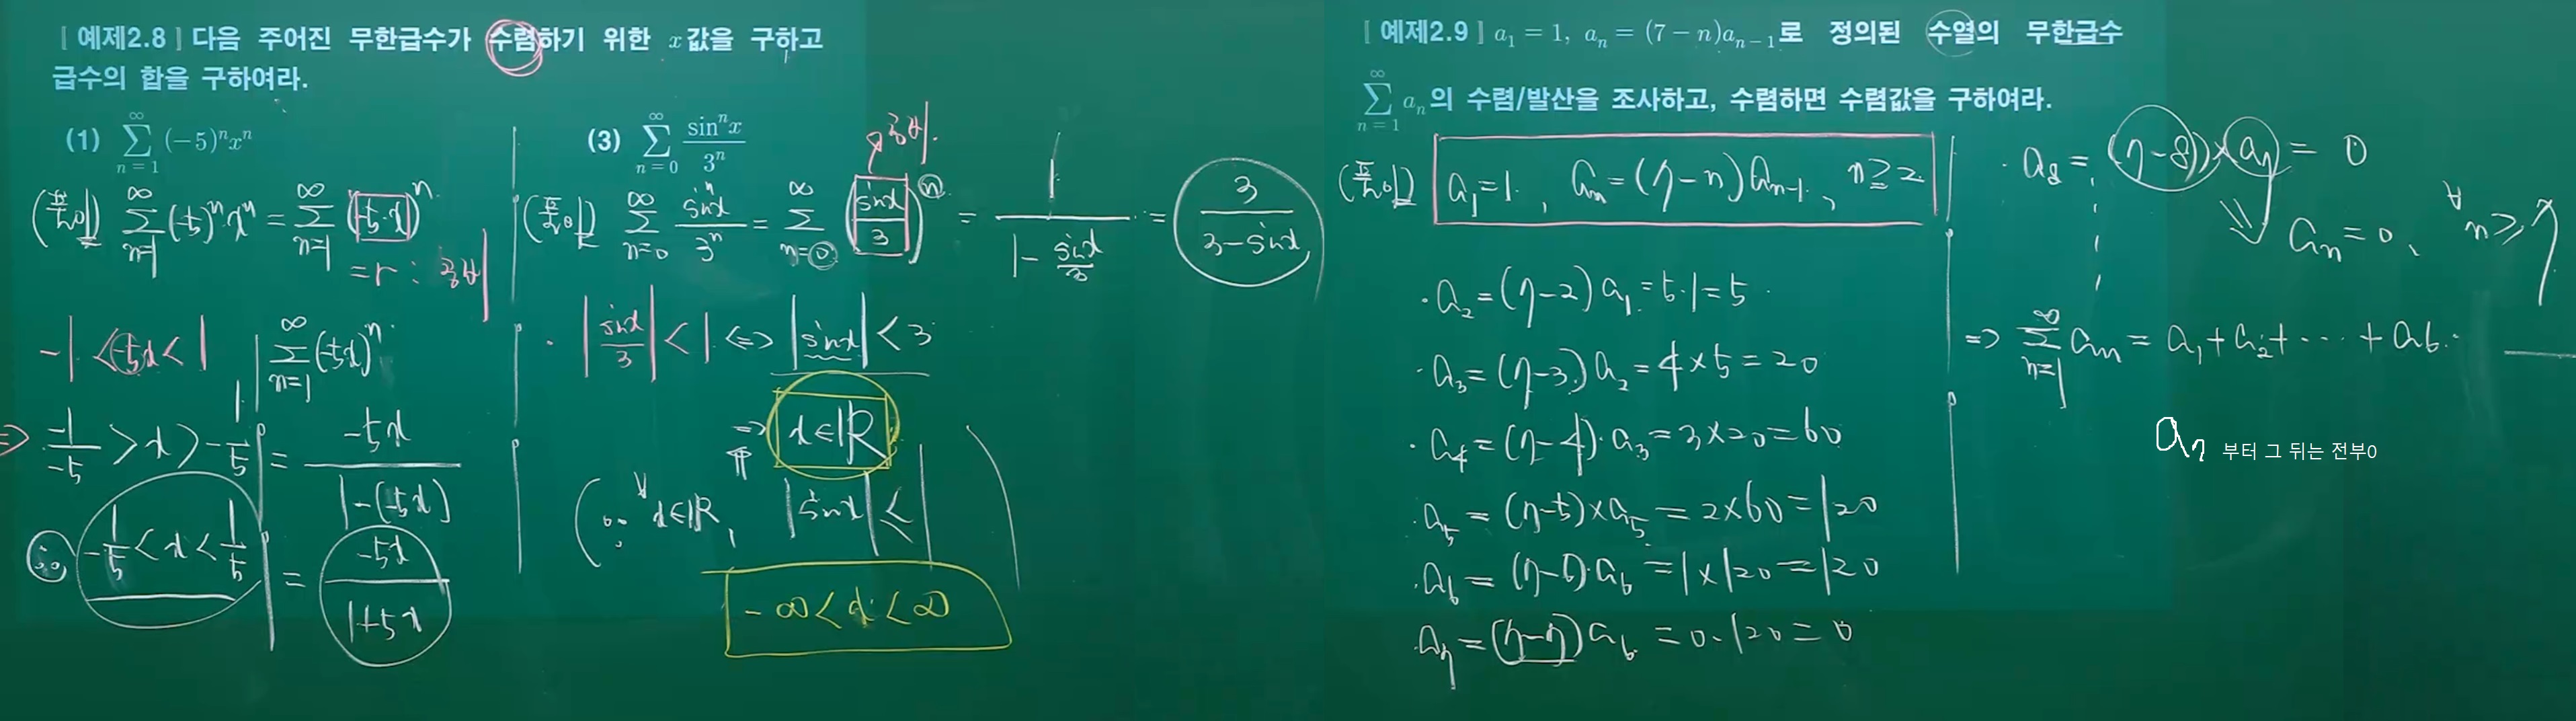 [ 예제2.8 ] 다음 주어진 무한급수가 수렴하기 위한 x값을 구하고
급수의 합을 구하여라.
(1) ∑_{n=1}^{∞} (-5)^n x^n
(풀이) ∑_{n=1}^{∞} (-5)^n x^n = ∑_{n=1}^{∞} (-5·x)^n
= r : 공비
-1 < -5x < 1
⇒ -1/-5 > x > 1/-5
∴ -1/5 < x < 1/5
∑_{n=1}^{∞} (-5x)^n
= -5x / 1-(-5x)
= -5x / 1+5x
(3) ∑_{n=0}^{∞} sin^n x / 3^n
공비
(풀이) ∑_{n=0}^{∞} sin^n x / 3^n = ∑_{n=0}^{∞} (sinx / 3)^n = 1 / 1 - sinx/3 = 3 / 3-sinx
· |sinx / 3| < 1 ⇔ |sinx| < 3
⇒ x∈ℝ
(∵ ∀x∈ℝ, |sinx| < 1)
-∞ < x < ∞
[ 예제2.9 ] a₁ = 1, aₙ = (7-n)aₙ₋₁로 정의된 수열의 무한급수
∑_{n=1}^{∞} aₙ의 수렴/발산을 조사하고, 수렴하면 수렴값을 구하여라.
(풀이) a₁=1, aₙ=(7-n)aₙ₋₁, n≥2
· a₂=(7-2)a₁=5·1=5
· a₃=(7-3)a₂=4×5=20
· a₄=(7-4)·a₃=3×20=60
· a₅=(7-5)×a₅=2×60=120
· a₆=(7-6)·a₆=1×120=120
· a₇=(7-7)a₆=0·120=0
· a₈=(7-8)×a₇=0
aₙ=0, ∀n≥7
⇒ ∑_{n=1}^{∞} aₙ = a₁+a₂+⋯+a₆
a₇ 부터 그 뒤는 전부0